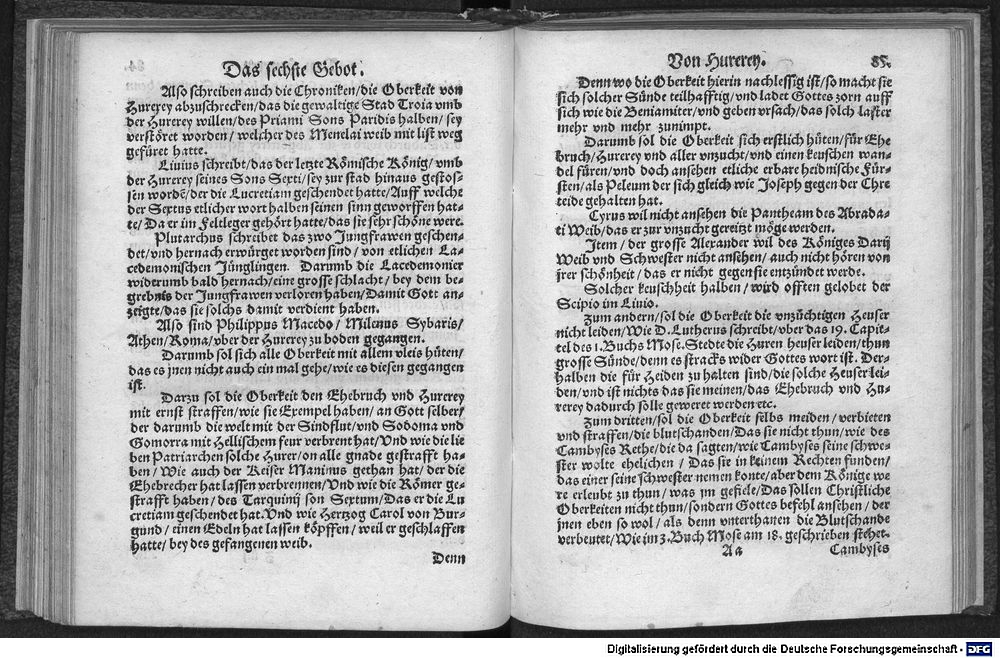 Das sechste Gebot.
Also schreiben auch die Chroniken/die Oberkeit von
Hurerey abzuschrecken/das die gewaltige Stad Troia vmb
der Hurerey willen/des Priami Sons Paridis halben/sey
verstöret worden/welcher des Menelai weib mit list weg
gefüret hatte.
Liuius schreibt/das der letzte Römische König/vmb
der Hurerey seines Sons Sexti/sey zur stad hinaus gestos-
sen wordē/der die Lucretiam geschendet hatte/Auff welche
der Sextus etlicher wort halben seinen sinn geworffen hat-
te/Da er im Feltleger gehört hatte/das sie sehr schöne were.
Plutarchus schreibet das zwo Jungfrawen geschen-
det/vnd hernach erwürget worden sind/von etlichen La-
cedemonischen Jünglingen. Darumb die Lacedemonier
widerumb bald hernach/eine grosse schlacht/bey dem be-
grebnis der Jungfrawen verloren haben/Damit Gott an-
zeigte/das sie solchs damit verdient haben.
Also sind Philippus Macedo/Milenus Sybaris/
Athen/Roma/vber der Hurerey zu boden gegangen.
Darumb sol sich alle Oberkeit mit allem vleis hüten/
das es jnen nicht auch ein mal gehe/wie es diesen gegangen
ist.
Darzu sol die Oberkeit den Ehebruch vnd Hurerey
mit ernst straffen/wie sie Exempel haben/an Gott selber/
der darumb die welt mit der Sindflut/vnd Sodoma vnd
Gomorra mit Hellischem feur verbrent hat/Vnd wie die lie
ben Patriarchen solche Hurer/on alle gnade gestrafft ha-
ben/Wie auch der Keiser Maninus gethan hat/der die
Ehebrecher hat lassen verbrennen/Vnd wie die Römer ge-
strafft haben/des Tarquinij son Sextum/Das er die Lu
cretiam geschendet hat. Vnd wie Hertzog Carol von Bur-
gund/einen Edeln hat lassen köpffen/weil er geschlaffen
hatte/bey des gefangenen weib.
Denn
Von Hurerey. 85.
Denn wo die Oberkeit hierin nachlessig ist/so macht sie
sich solcher Sünde teilhafftig/vnd ladet Gottes zorn auff
sich wie die Beniamiter/vnd geben vrsach/das solch laster
mehr vnd mehr zunimpt.
Darumb sol die Oberkeit sich erstlich hüten/für Ehe
bruch/Hurerey vnd aller vnzucht/vnd einen keuschen wan-
del füren/vnd doch ansehen etliche erbare heidnische Für-
sten/als Peleum der sich gleich wie Joseph gegen der Chre
teide gehalten hat.
Cyrus wil nicht ansehen die Pantheam des Abrada-
ti Weib/das er zur vnzucht gereitzt möge werden.
Item/der grosse Alexander wil des Königes Darij
Weib vnd Schwester nicht ansehen/auch nicht hören von
jrer schönheit/das er nicht gegen sie entzündet werde.
Solcher keuschheit halben/wird offten gelobet der
Scipio im Liuio.
Zum andern/sol die Oberkeit die vnzüchtigen Heuser
nicht leiden/Wie D. Lutherus schreibt/vber das 19. Capit-
tel des 1. Buchs Mose. Stedte die Huren heuser leiden/thun
grosse Sünde/denn es stracks wider Gottes wort ist. Der-
halben die für Heiden zu halten sind/die solche Heuser lei-
den/vnd ist nichts das sie meinen/das Ehebruch vnd Hu-
rerey dadurch solle geweret werden etc.
Zum dritten/sol die Oberkeit selbs meiden/verbieten
vnd straffen/die blutschanden/Das sie nicht thun/wie des
Cambyses Rethe/die da sagten/wie Cambyses seine schwe-
ster wolte ehelichen/Das sie in keinem Rechten funden/
das einer seine schwester nemen konte/aber dem Könige we
re erleubt zu thun/was jm gefiele/Das sollen Christliche
Oberkeiten nicht thun/sondern Gottes befehl ansehen/der
jnen eben so wol/als denn vnterthanen die Blutschande
verbeutet/Wie im 3. Buch Mose am 18. geschrieben stehet.
Aa Cambyses
Digitalisierung gefördert durch die Deutsche Forschungsgemeinschaft - DFG